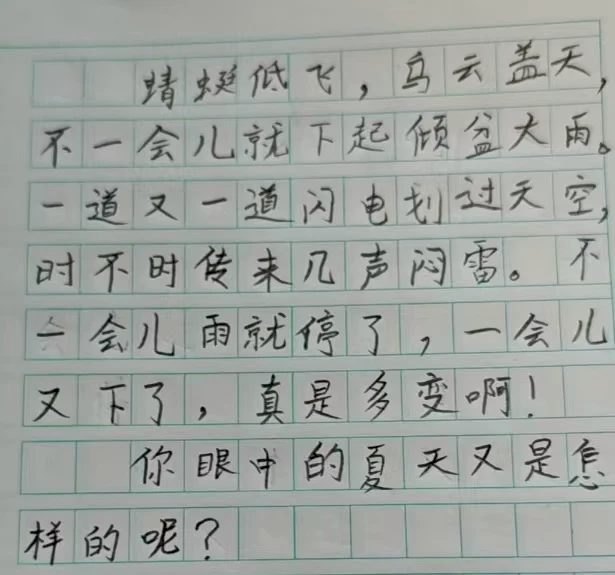 蜻蜓低飞，乌云盖天，
不一会儿就下起倾盆大雨。
一道又一道闪电划过天空，
时不时传来几声闷雷。不
一会儿雨就停了，一会儿
又下了，真是多变啊！
你眼中的夏天又是怎
样的呢？